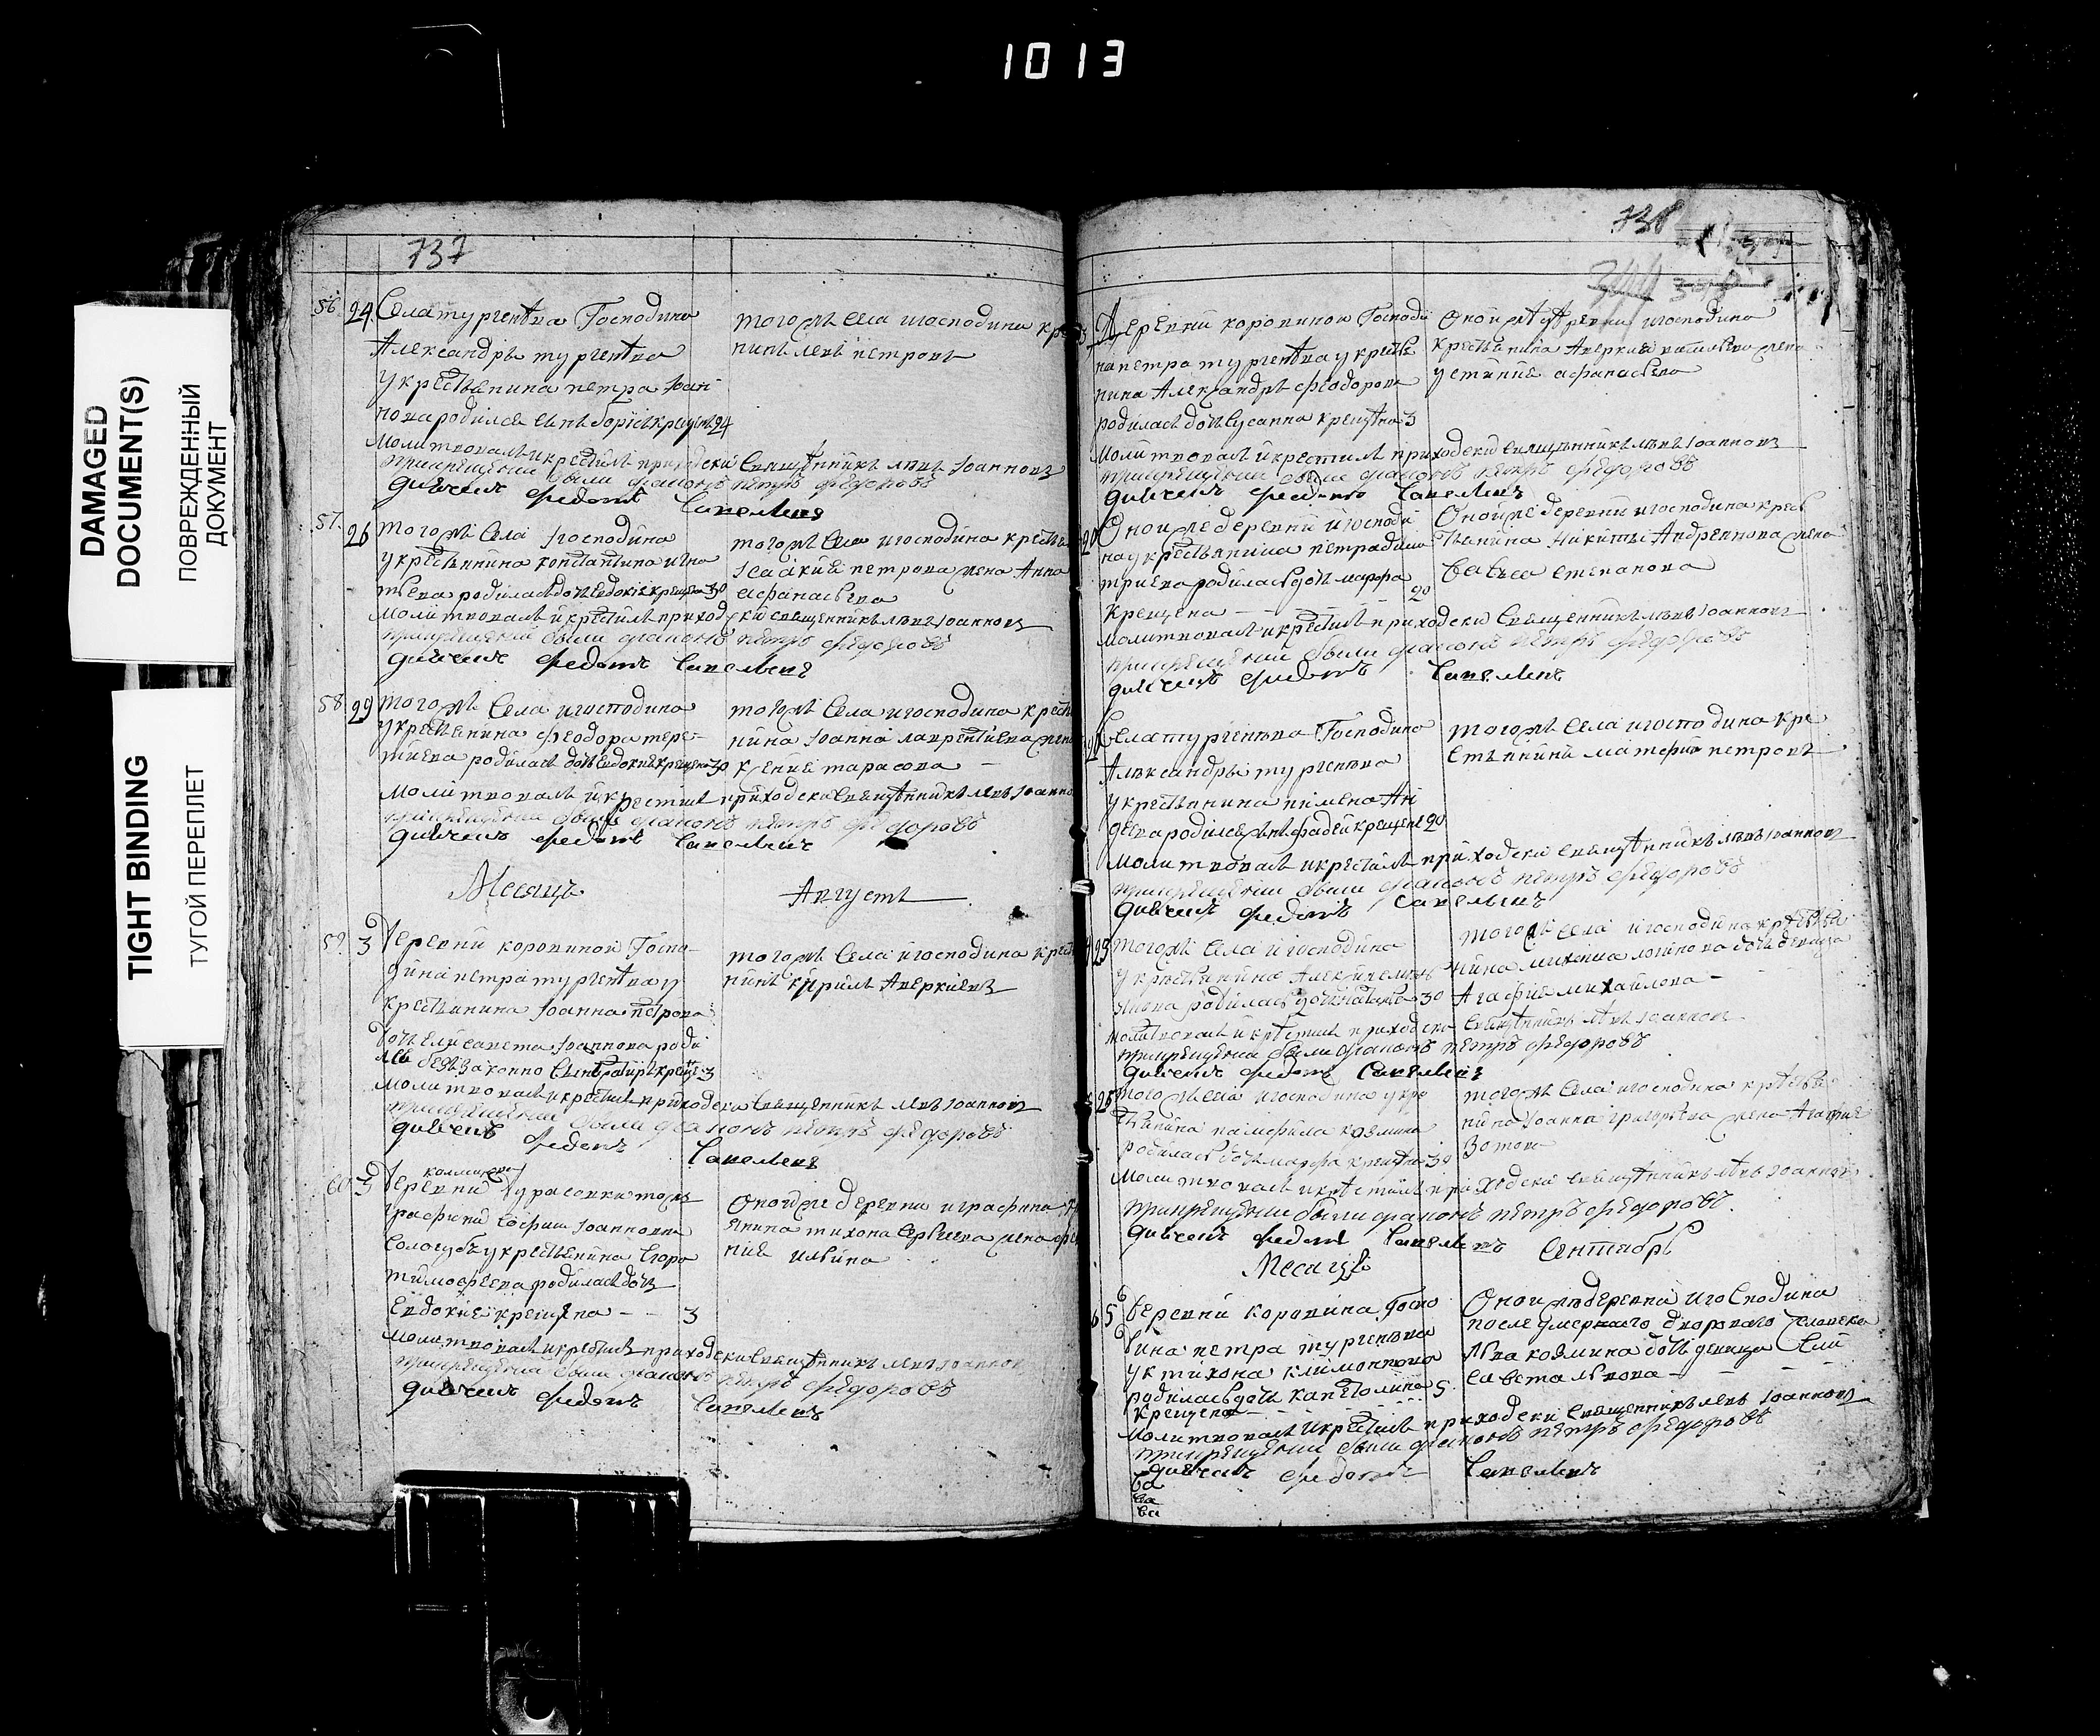 1013
DAMAGED
DOCUMENT(S)
ПОВРЕЖДЕННЫЙ
ДОКУМЕНТ
TIGHT BINDING
ТУГОЙ ПЕРЕПЛЕТ
737
56. 24 Села тургенѣва Господина
Александръ тургенѣва
у крестьянина петра Іоан
нова родился сынъ борисъ крещенъ 24
тогожъ села игосподина кре
нинъ левъ петровъ
молитвовалъ и крестилъ приходски священникъ левъ Іоанновъ
прикрещении были диаконъ петръ федоровъ
дьячекъ федотъ савельевъ
57. 26 тогожъ села Iгосподина
у крестьянина константина игна
тьева родилась дочь Евдокія крещена 30
тогожъ села игосподина кресть
Iсаакия петрова жена Анна
афанасьева
молитвовалъ и крестилъ приходски священникъ левъ Iоанновъ
прикрещении были диаконъ петръ федоровъ
дьячекъ федотъ савельевъ
58. 29 тогожъ села игосподина
у крестьянина феодора тере-
тиева родилась дочь Евдокия крещена 30
тогожъ села игосподина кресть
нина Iоанна лаврентиева жена
ксения тарасова
молитвовалъ и крестилъ приходски священникъ левъ Iоанно
прикрещении были диаконъ петръ федоровъ
дьячекъ федотъ савельевъ
Месяцъ Августъ
59. 3 деревни коровинои Госпо-
дина петра тургенѣва у
крестьянина Iоанна петрова
дочь Елисавета Iоаннова роди
ла беззаконно крещенъ 3
тогожъ села игосподина крест
нинъ кирилъ Аверкиевъ
молитвовалъ и крестилъ приходски священникъ левъ Iоанновъ
прикрещении были диаконъ петръ федоровъ
дьячекъ федотъ савельевъ
60. 3 деревни
графини софии Iоанновны
сологубъ у крестьянина
тимофеева родилась дочь
Евдокия крещена - - 3
Онойже деревни играфини
янина тихона сергиева жена
ния ильина
молитвовалъ и крестилъ приходски священникъ левъ Iоаннов
прикрещении были диаконъ петръ федоровъ
дьячекъ федотъ савельевъ
738
Деревни коровинои Господи
на петра тургенѣва у кресть
нина Александръ феодорова
родилась дочь сусанна крещѣна 3
Онойжѣ деревни игосподина
крестьянина Аверкия васильева жена
устиния афанасьева
молитвовалъ и крестилъ приходски священникъ левъ Iоанновъ
прикрещении были диаконъ петръ федоровъ
дьячекъ федотъ савельевъ
20 Онойже деревни игосподи
на у крестьянина петра дими
триева родилась дочь марфа
крещена - - - 20
Онойже деревни игосподина крес
тьянина Никиты Андреинова жена
степанова
молитвовалъ и крестилъ приходски священникъ левъ Iоанновъ
прикрещении были диаконъ петръ федоровъ
дьячекъ федотъ савельевъ
села тургенѣва Господина
Алѣксандръ тургенѣва
у крестьянина пимена
деева родился сынъ фадей крещенъ 20
тогожъ села игосподина кре
стьянинъ матфий петровъ
молитвовалъ и крестилъ приходски священникъ левъ Iоанновъ
прикрещении были диаконъ петръ федоровъ
дьячекъ федотъ савельевъ
23 тогожъ села игосподина
у крестьянина
родилась дочь 30
тогожъ села игосподина крестья
нина дочь девица
Агафия михайлова -
молитвовалъ и крѣстилъ приходски священникъ левъ Iоаннов
прикрещении были диаконъ петръ федоровъ
дьячекъ федотъ савельевъ
25 тогожъ села игосподина у кре
тьянина памфила козмина
родилась дочь марфа крещена 30
тогожъ села игосподина крѣстья
нина Iоанна григорьева жена Агафия
Зотова
молитвовалъ и крѣстилъ приходски священникъ левъ Iоаннов
прикрещении были диаконъ петръ федоровъ.
дьячекъ федотъ савельевъ
Месяцъ Сентябрь
5 деревни коровина Госпо
дина петра тургенѣва
у тихона климонтова
родилась дочь капетолина 5
крещена
Онойжъ деревни игосподина
после умершаго двороваго человека
Льва козмина дочь девица Ели
савета львова -
молитвовалъ и крестилъ приходски священникъ левъ Iоанновъ
прикрещении были диаконъ петръ федоровъ
дьячекъ федотъ савельевъ